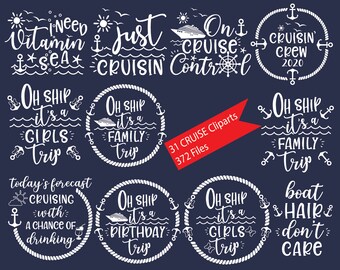 I need
Vitamin
Sea
Just
Cruisin'
On
CRUISE
Control
CRUISIN'
CREW
2020
OH SHIP
it's a
GIRLS
Trip
OH SHIP
it's a
FAMILY
Trip
31 CRUISE Cliparts
372 Files
OH SHIP
it's a
FAMILY
Trip
today's forecast
CRUISING
with
A CHANCE OF
drinking
OH SHIP
it's a
BIRTHDAY
trip
OH SHIP
it's a
GIRLS
trip
boat
HAIR
don't
CARE